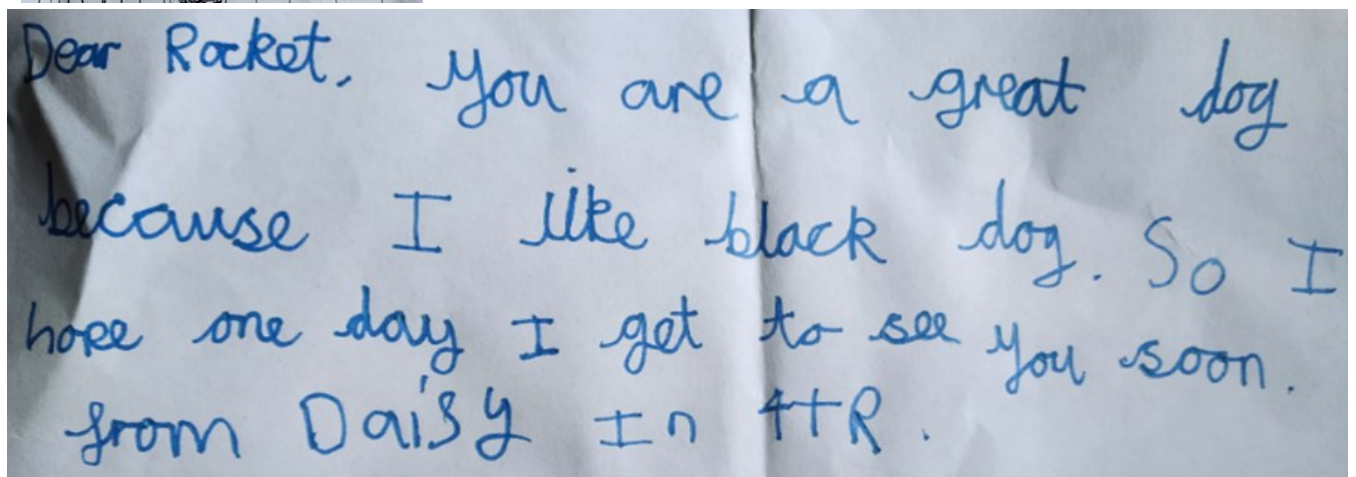 Dear Rocket, you are a great dog
because I like black dog. So I
hope one day I get to see you soon.
from Daisy In 4TR.